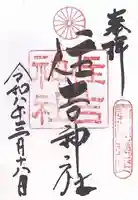 奉拝
住吉神社
令和八年三月十八日